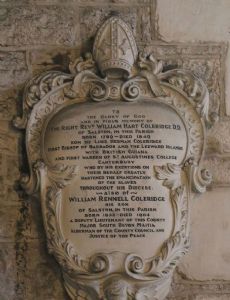 TO
THE GLORY OF GOD
AND IN PIOUS MEMORY OF
THE RIGHT REVD WILLIAM HART COLERIDGE D.D.
OF SALSTON, IN THIS PARISH
BORN 1789 - DIED 1849
SON OF LUKE HERMAN COLERIDGE
FIRST BISHOP OF BARBADOS AND THE LEEWARD ISLANDS
WITH BRITISH GUIANA
AND FIRST WARDEN OF ST AUGUSTINES COLLEGE
CANTERBURY
WHO BY HIS EXERTIONS ON
THEIR BEHALF GREATLY
HASTENED THE EMANCIPATION
OF THE SLAVES
THROUGHOUT HIS DIOCESE.
ALSO OF
WILLIAM RENNELL COLERIDGE
HIS SON
OF SALSTON, IN THIS PARISH
BORN DIED 1904
A DEPUTY LIEUTENANT OF THIS COUNTY
MAJOR SOUTH DEVON MILITIA
ALDERMAN OF THE COUNTY COUNCIL AND
JUSTICE OF THE PEACE